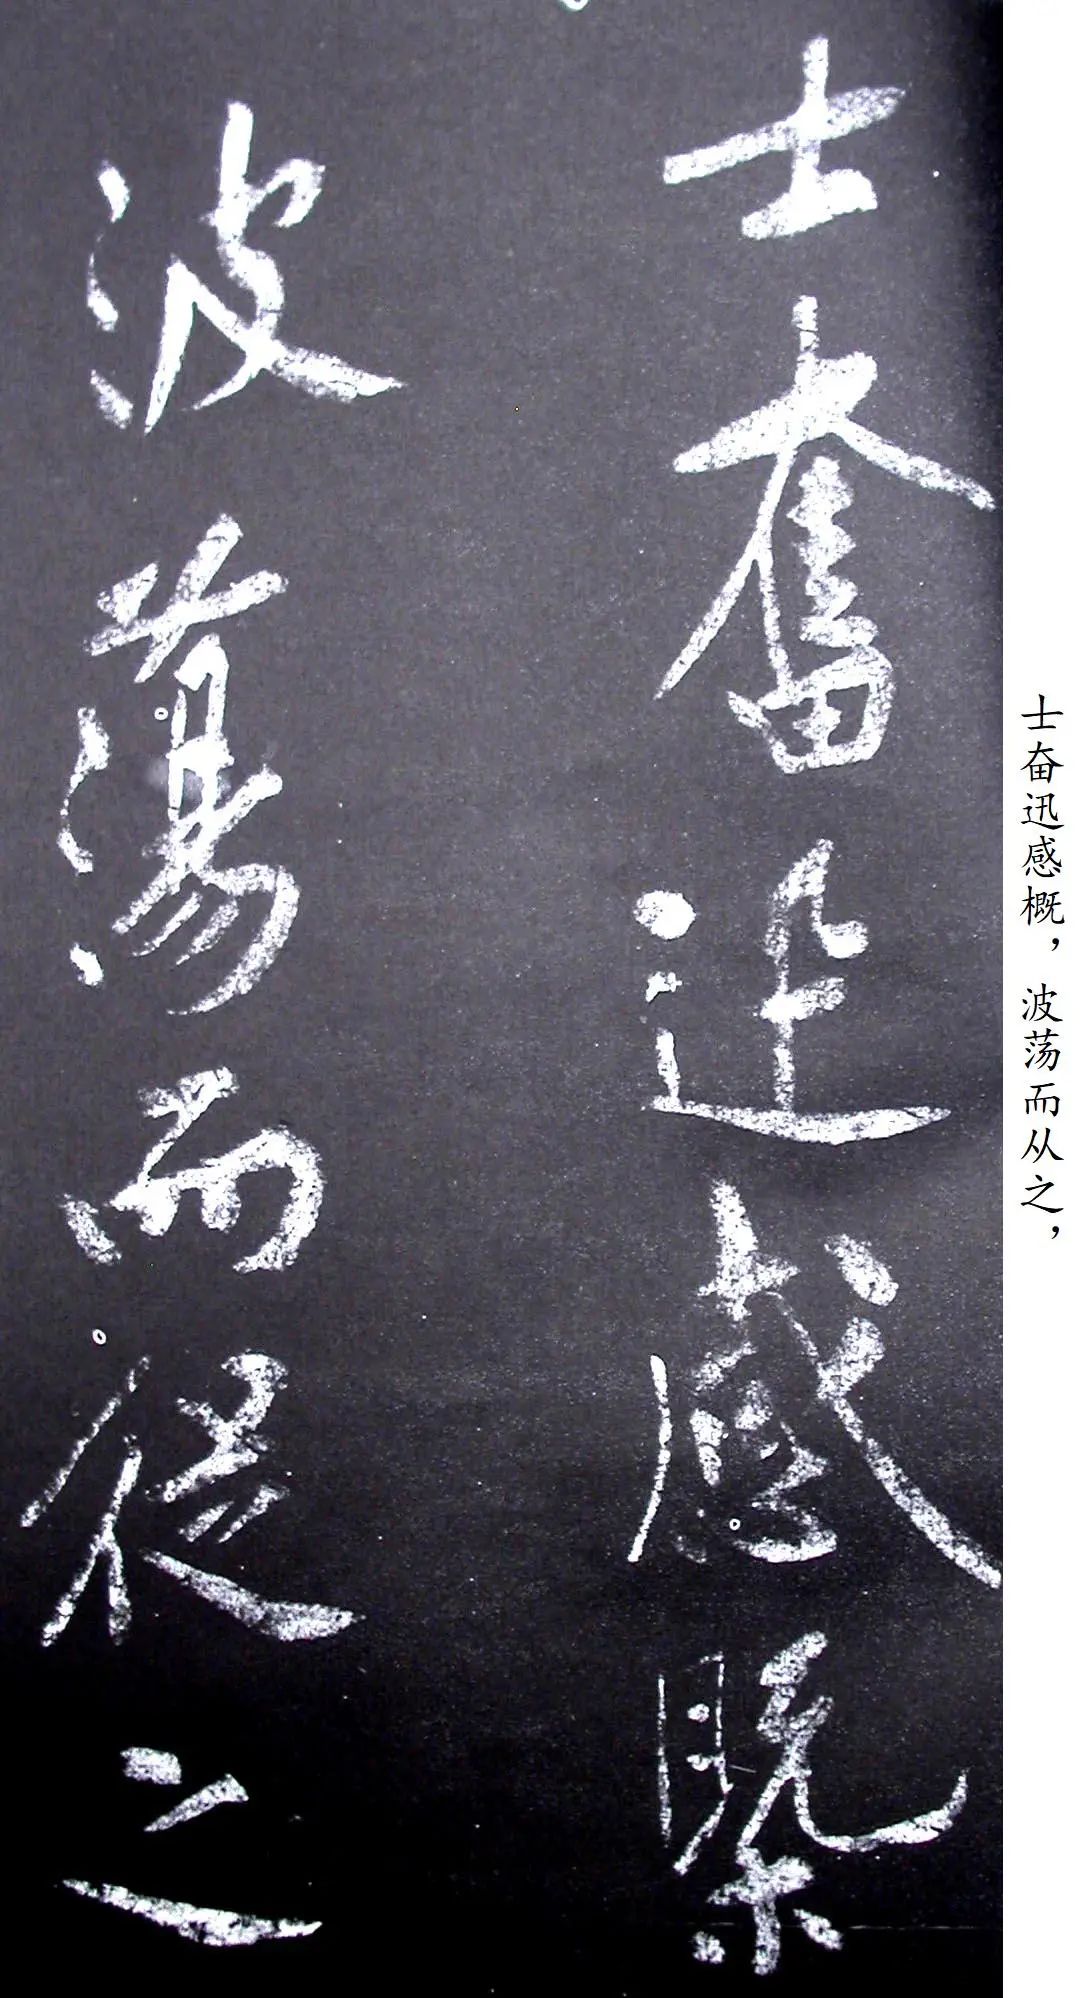 士奮迅感槩
波蕩而從之
士奋迅感概，波荡而从之，